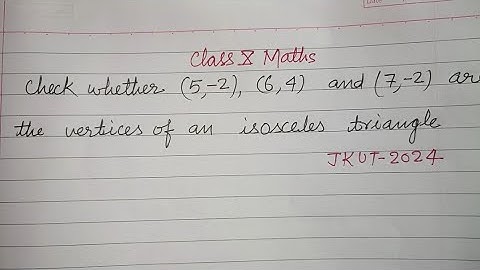 Class X Maths
Check whether (5,-2), (6,4) and (7,-2) are
the vertices of an isosceles triangle
JKUT-2024